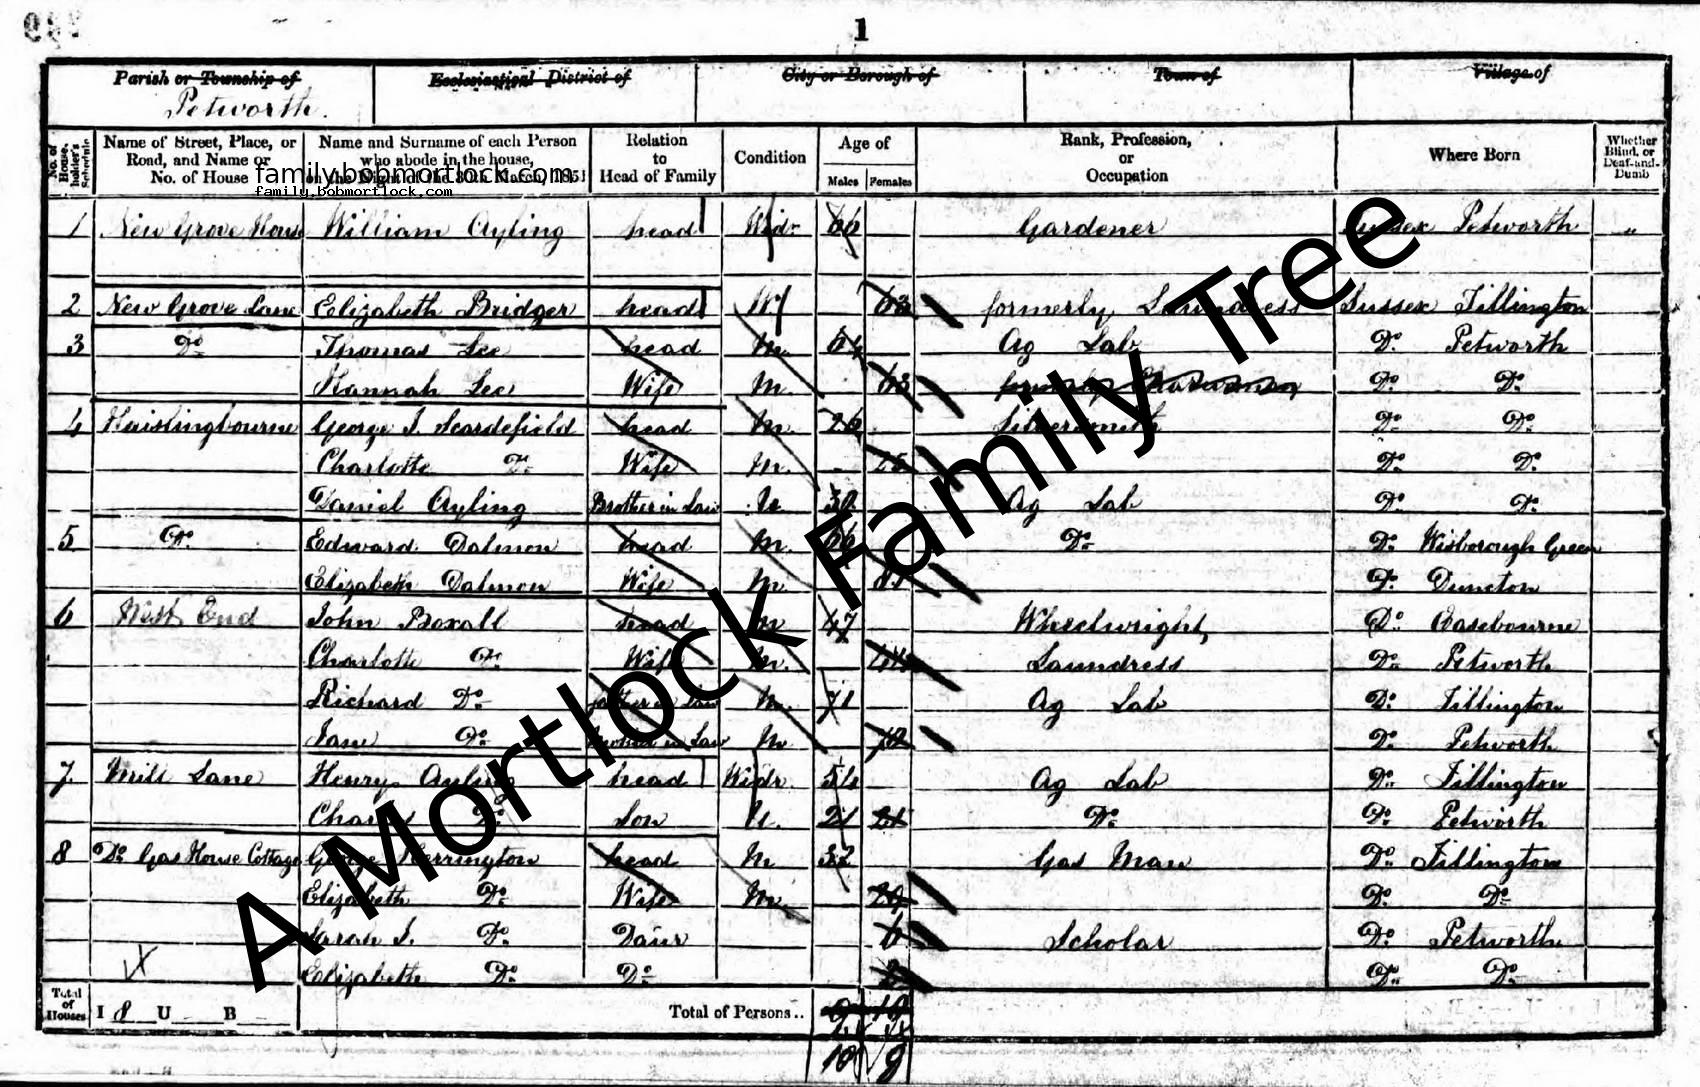 1
Parish or Township of Ecclesiastical District of City or Borough of Town of Village of
Petworth.
No. of House-holder's Schedule
Name of Street, Place, or Road, and Name or No. of House
Name and Surname of each Person who abode in the house, on the Night of the 30th March, 1851
Relation to Head of Family
Condition
Age of
Males Females
Rank, Profession, or Occupation
Where Born
Whether Blind, or Deaf-and-Dumb
family.bobmortlock.com
family.bobmortlock.com
1 New Grove House William Ayling head Widr 66 Gardener Sussex Petworth "
2 New Grove Lane Elizabeth Bridger head W 63 formerly Laundress Sussex Tillington
3 Do Thomas Lee head M. 64 Ag Lab Do Petworth
Hannah Lee Wife M. 63 formerly Charwoman Do Do
4 Haislingbourne George J. Scardefield head M. 26 Silversmith Do Do
Charlotte Do Wife M. 25 Do Do
Daniel Ayling Brother in Law U 30 Ag Lab Do Do
5 Do Edward Dalmon head M. 66 Do Do Wisborough Green
Elizabeth Dalmon Wife M. Do Duncton
6 West End John Boxall head M 47 Wheelwright Do Easebourne
Charlotte Do Wife M. 44 Laundress Do Petworth
Richard Do father in Law M. 71 Ag Lab Do Tillington
Jane Do Mother in Law M 72 Do Petworth
7 Mill Lane Henry Ayling head Widr 54 Ag Lab Do Tillington
Do Son U. 21 21 Do Do Petworth
8 Do Gas House Cottage George Herrington head M 32 Gas Man Do Tillington
Elizabeth Do Wife M. 29 Do Do
Sarah J. Do Daur 6 Scholar Do Petworth
Elizabeth Do Do 2 Do Do
Total of Houses I 8 U B Total of Persons.. 9 10
10 9
A Mortlock Family Tree